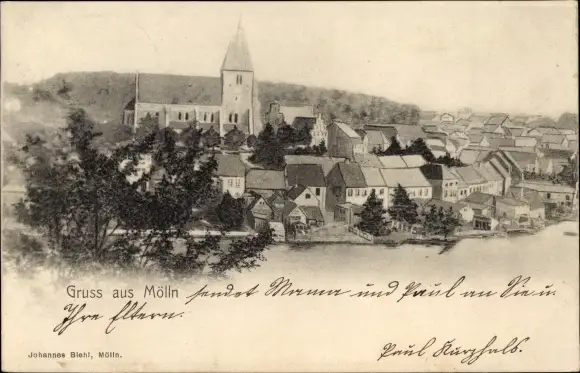 Gruss aus Mölln sendet Mama und Paul an Sie u.
Ihre Eltern.
Paul Kurzhals.
Johannes Biehl, Mölln.